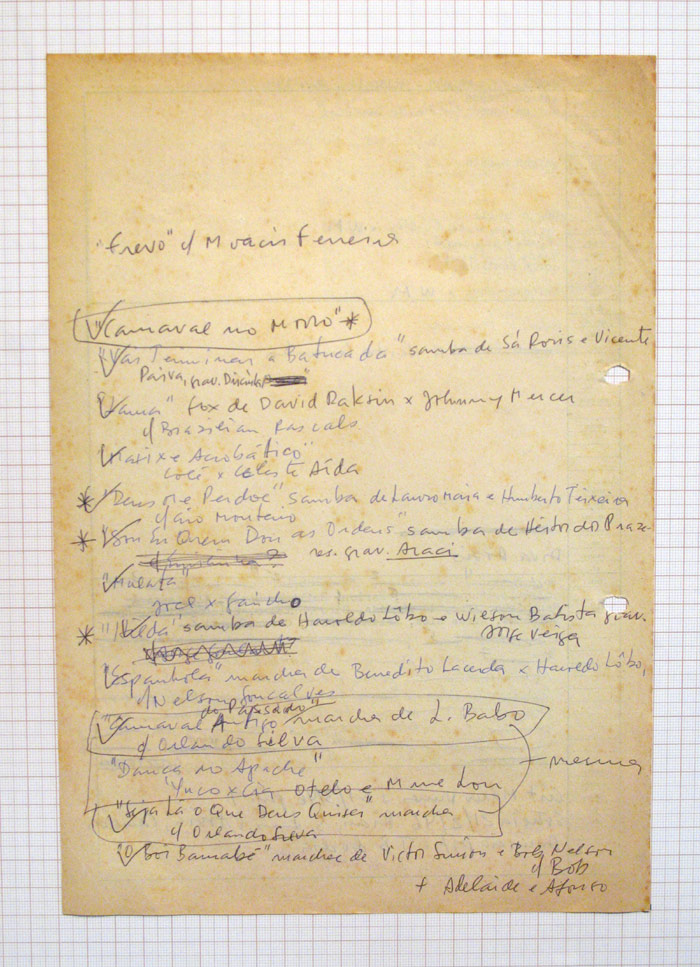 "Frevo" c/ Moacir Ferreira
"Carnaval no Morro" *
"Vais Terminar a Batucada" samba de Sá Roris e Vicente
Paiva, grav. Dircinha
fox de David Raksin x Johnny Mercer
c/ Brazilian Rascals
Acrobático"
Colé x Celeste Aída
* "Deus me Perdoe" samba de Lauro Maia e Humberto Teixeira
c/ Ciro Monteiro
* "Sou Eu Quem Dou as Ordens" samba de Heitor dos Praze-
res. grav. Araci
"Mulata"
Joel x Gaúcho
* samba de Haroldo Lôbo e Wilson Batista grav.
Jorge Veiga
"Espanhola" marcha de Benedito Lacerda x Haroldo Lôbo,
c/ Nelson Gonçalves
do Passado"
"Carnaval Antigo marcha de L. Babo
c/ Orlando Silva
"Dança no Apache"
Otelo e Mme Lou
+ mesma
"Seja Lá o Que Deus Quiser" marcha
c/ Orlando Silva
"O Boi Barnabé" marcha de Victor Simon e Bob Nelson
c/ Bob
+ Adelaide e Afonso